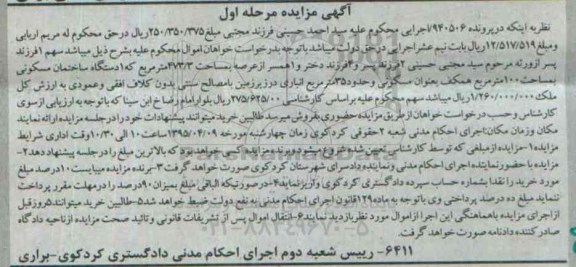 آگهی مزایده مرحله اول
نظر به اینکه در پرونده ۹۴۰۵۰۶/اجرایی محکوم علیه سید احمد حسینی فرزند مجتبی مبلغ ۲۵۰/۳۵۰/۳۷۵ ریال در حق محکوم له مریم اربابی
ومبلغ ۱۲/۵۱۷/۵۱۹ ریال بابت نیم عشر اجرایی در حق دولت میباشد باتوجه بدرخواست خواهان اموال محکوم علیه بشرح ذیل میباشد سهم ۱فرزند
پسر از ورثه مرحوم سید مجتبی حسینی ۲فرزند پسر و ۴فرزند دختر و ۱همسر از عرصه بمساحت ۴۷۳/۳مترمربع که ۱دستگاه ساختمان مسکونی
بمساحت ۱۰۰مترمربع همکف بعنوان مسکونی وحدود ۳۵مترمربع انباری در زیرزمین بامصالح سنتی بدون کلاف افقی و عمودی به ارزش کل
ملک ۱/۲۶۰/۰۰۰/۰۰۰ریال میباشد سهم محکوم علیه براساس کارشناسی ۲۷۵/۶۲۵/۰۰ ریال بلوار امام رضا خ ابن سینا که باتوجه به ارزیابی ازسوی
کارشناس و حسب درخواست خواهان از طریق مزایده حضوری بفروش میرسد طالبین خرید میتوانند پیشنهادات خود را در جلسه مزایده ارائه نمایند
مکان و زمان مکان:اجرای احکام مدنی شعبه ۲حقوقی کردکوی زمان چهارشنبه مورخه ۱۳۹۵/۰۴/۰۹ ساعت ۱۰ الی ۱۰/۳۰ وقت اداری شرایط
مزایده ۱-مزایده از مبلغی که توسط کارشناس تعیین شده شروع میشود و برنده مزایده کسی خواهد بود که بالاترین مبلغ را در جلسه پیشنهاد دهد۲-
مزایده با حضور نماینده اجرای احکام مدنی و نماینده دادسرای شهرستان کردکوی صورت خواهد گرفت ۳-برنده مزایده میبایست ۱۰درصد مبلغ
مورد خرید را نقدا بشماره حساب سپرده دادگستری کردکوی واریز نماید۴-در صورتیکه الباقی مبلغ بمیزان ۹۰درصد را در مهلت مقرر پرداخت
ننماید مبلغ ده درصد پرداختی وی باتوجه به ماده ۱۲۹قانون اجرای احکام مدنی به نفع دولت ضبط خواهد شد۵-طالبین خرید میتوانند ۵روز قبل
از اجرای مزایده باهماهنگی این اجرا از اموال مورد نظر بازدید نمایند ۶-انتقال اموال پس از تشریفات قانونی و تائید صحت مزایده از ناحیه دادگاه
صادر کننده دادنامه صورت خواهد گرفت.
۶۴۱۱- رییس شعبه دوم اجرای احکام مدنی دادگستری کردکوی-براری
۰۲۱-۸۸۳۴۹۶۷۰-۵